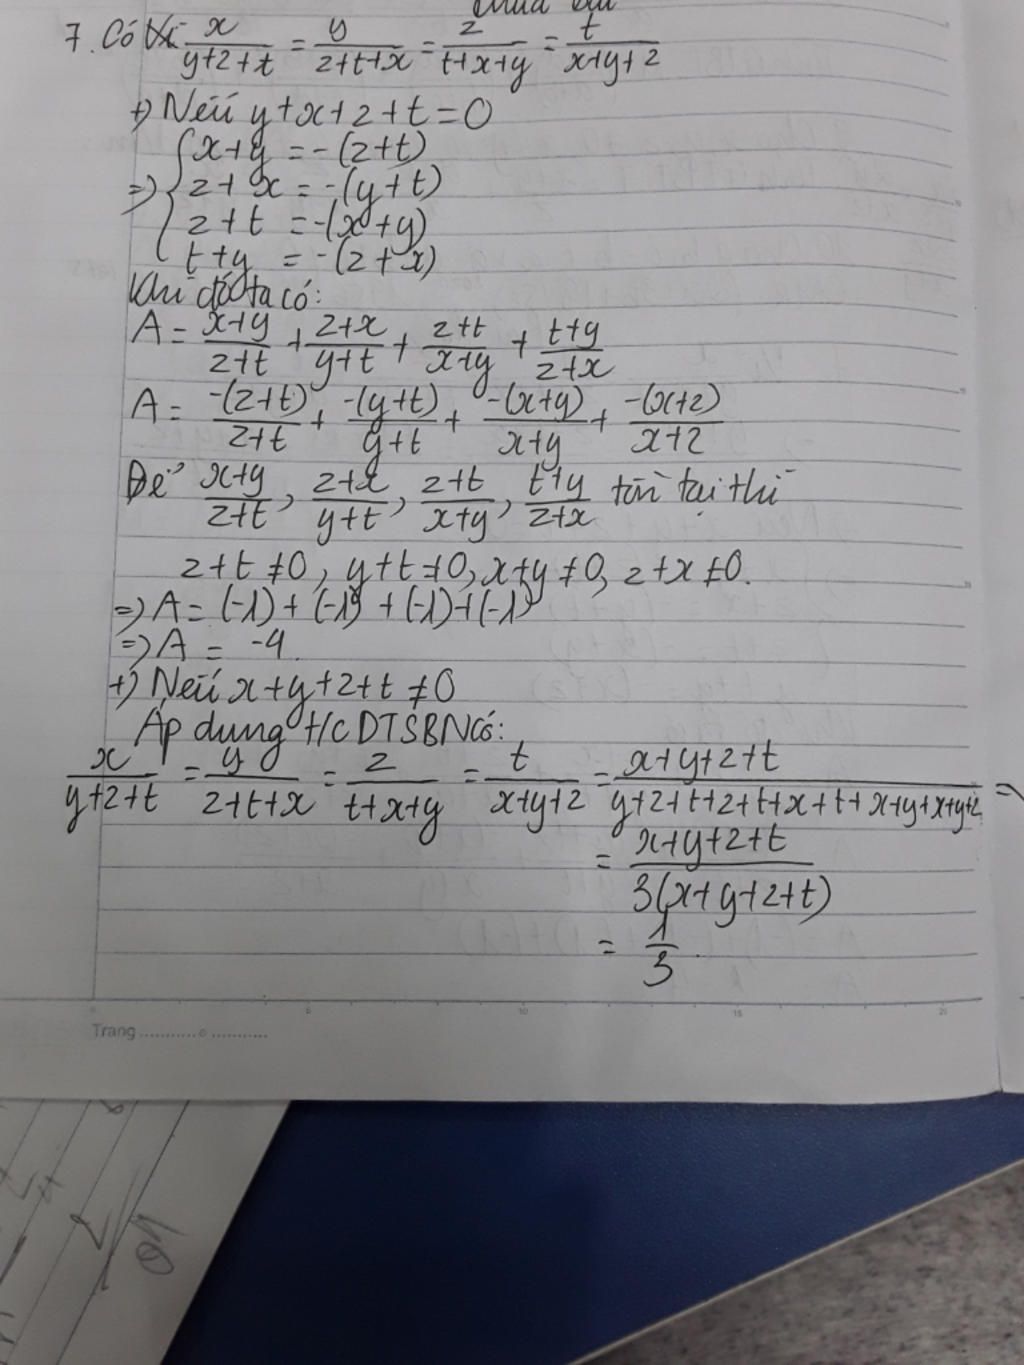 7. Có Vì x/(y+z+t) = y/(z+t+x) = z/(t+x+y) = t/(x+y+z)
+) Nếu y+x+z+t=0
=> { x+y = -(z+t)
z+x = -(y+t)
z+t = -(x+y)
t+y = -(z+x)
Khi đó ta có:
A = (x+y)/(z+t) + (z+x)/(y+t) + (z+t)/(x+y) + (t+y)/(z+x)
A = -(z+t)/(z+t) + -(y+t)/(y+t) + -(x+y)/(x+y) + -(x+z)/(x+z)
Để (x+y)/(z+t), (z+x)/(y+t), (z+t)/(x+y), (t+y)/(z+x) tồn tại thì
z+t ≠0, y+t ≠0, x+y ≠0, z+x ≠0.
=> A = (-1) + (-1) + (-1) + (-1)
=> A = -4.
+) Nếu x+y+z+t ≠0
Áp dụng t/c DTSBN có:
x/(y+z+t) = y/(z+t+x) = z/(t+x+y) = t/(x+y+z) = (x+y+z+t)/(y+z+t+z+t+x+t+x+y+x+y+z) =
= (x+y+z+t)/(3(x+y+z+t))
= 1/3
Trang